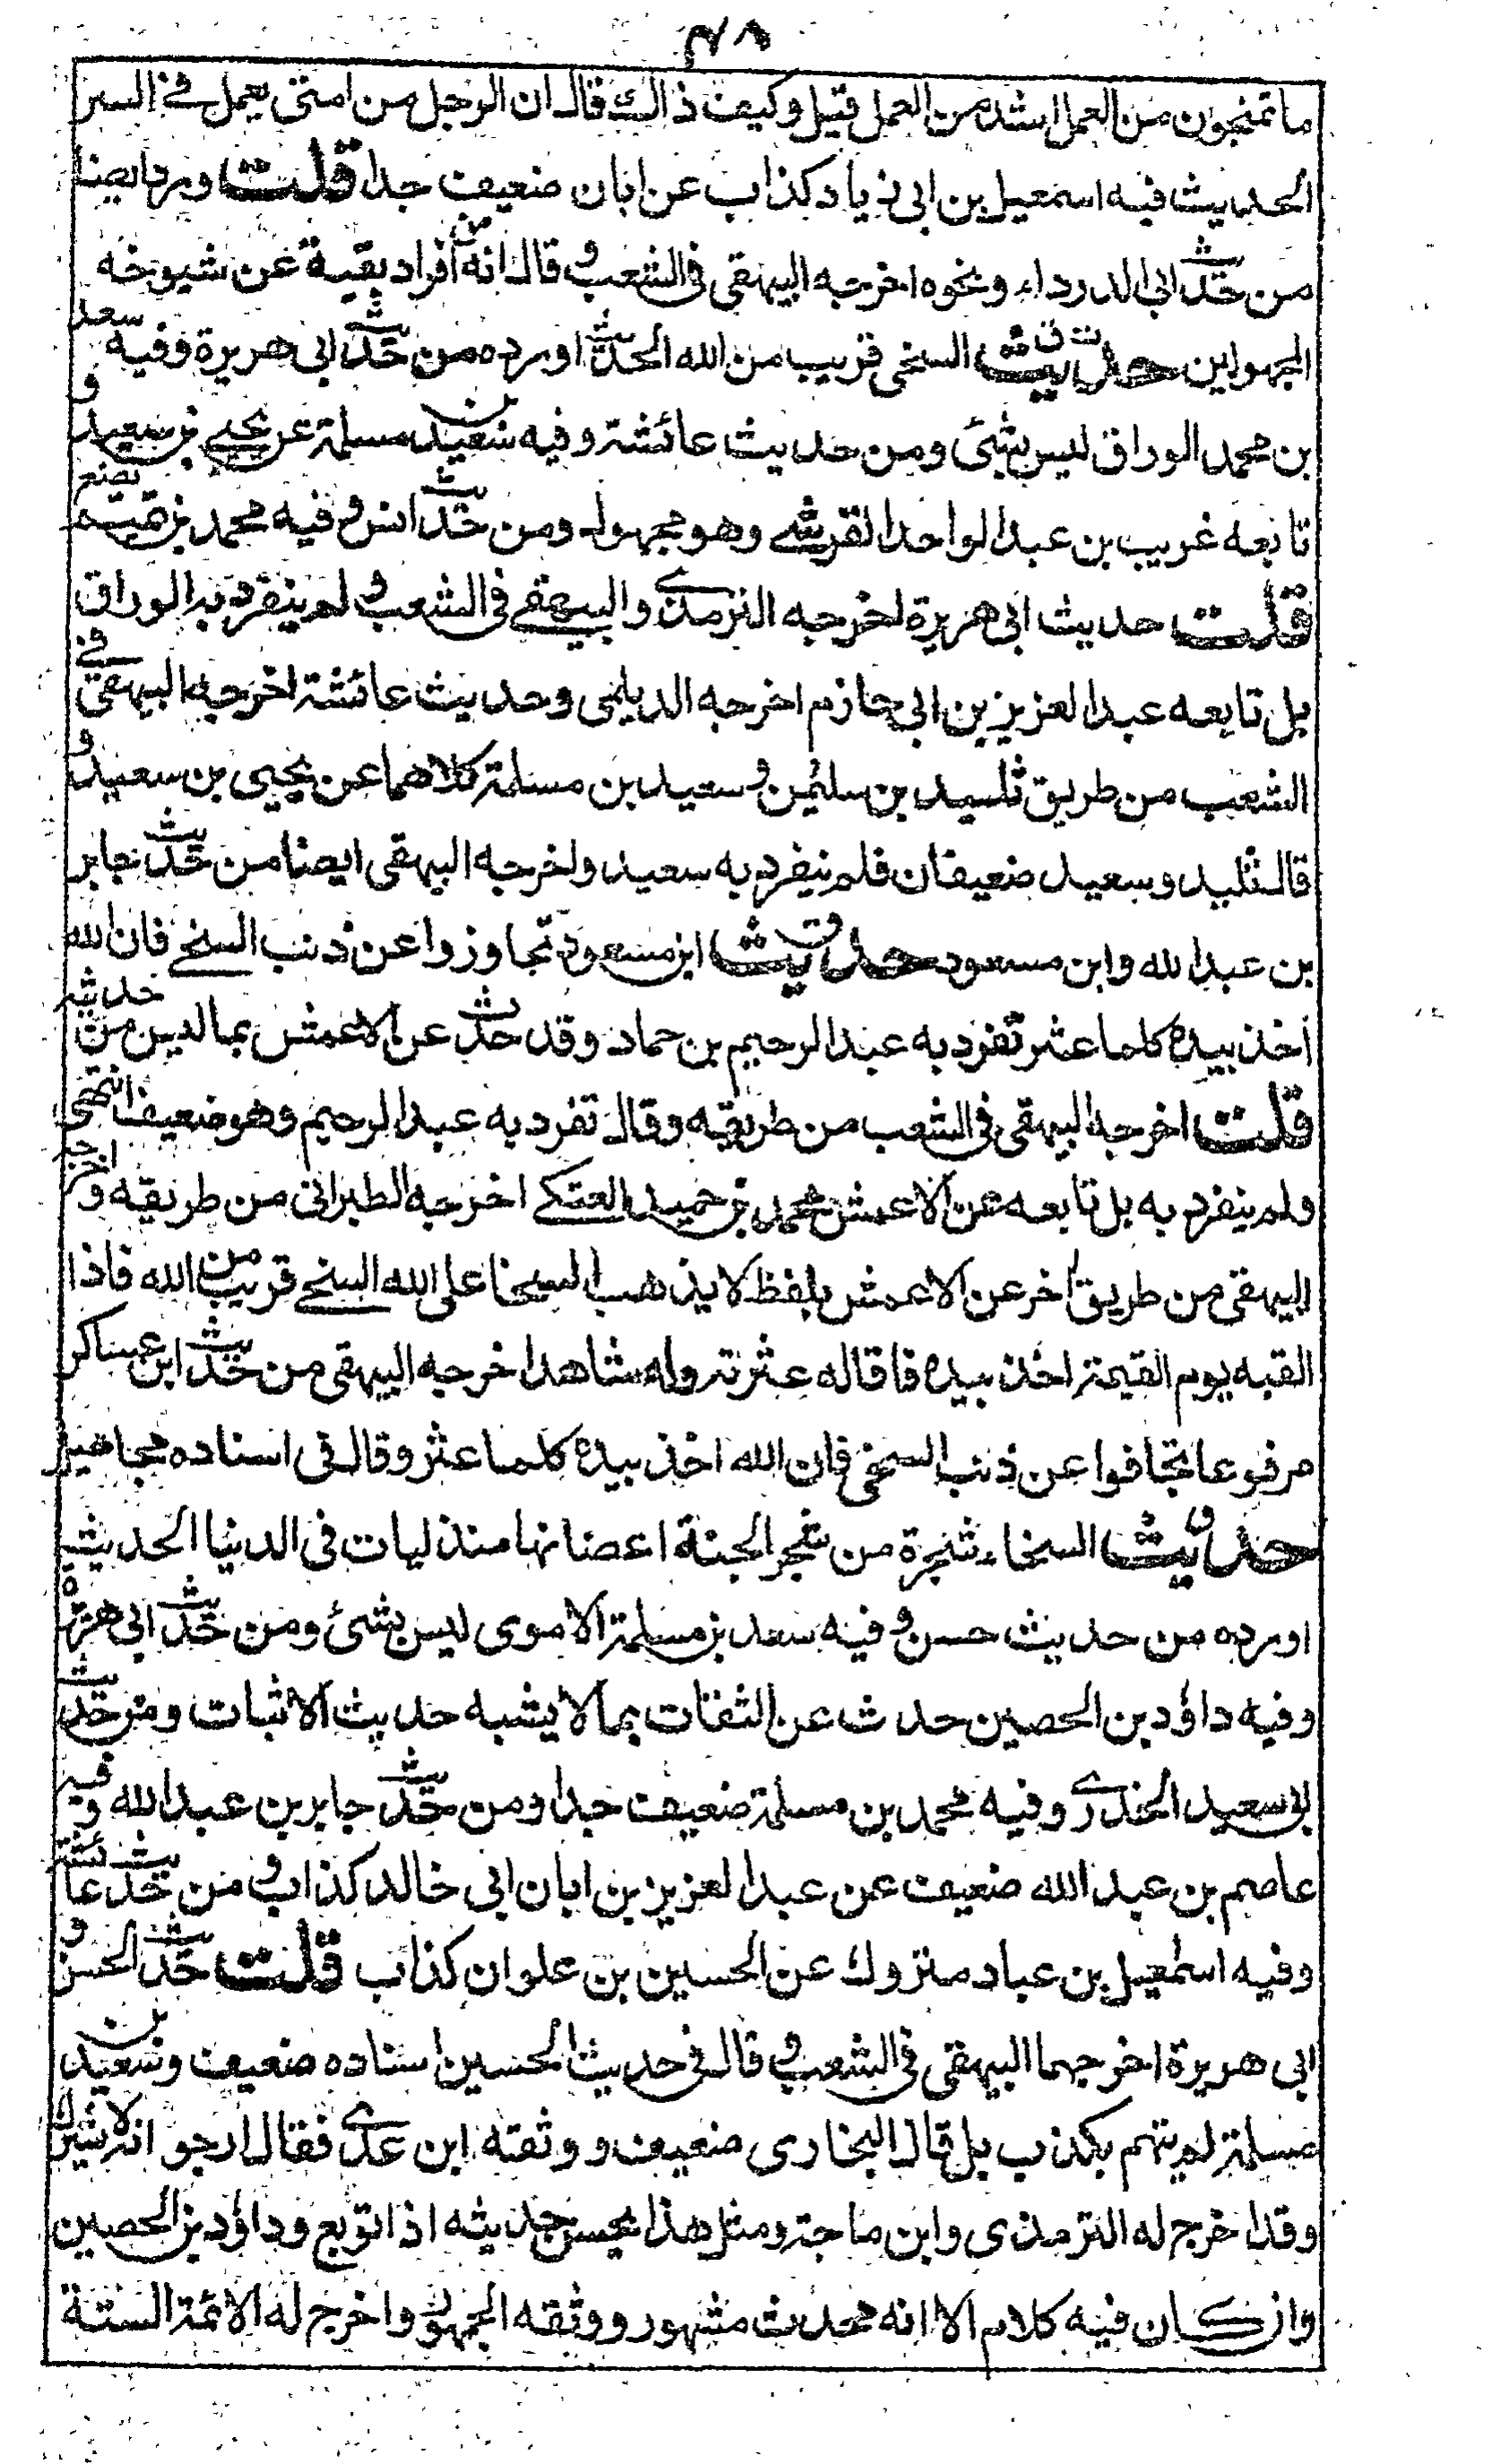 ٢٨
ما تمنجون من العمل اشد من العمل قيل وكيف ذالك قال ان الرجل من امتى يعمل فى السر
الحديث فيه اسمعيل بن ابى زياد كذاب عن ابان ضعيف جدا قلت ورد ايضا
من حديث ابى الدرداء ونحوه اخرجه البيهقى فى الشعب وقال انه من افراد بقية عن شيوخه
المجهولين حديث السخى قريب من الله الحديث اورده من حديث ابى هريرة وفيه سعد
بن محمد الوراق ليس بشئ ومن حديث عائشة وفيه سعيد بن مسلمة عن يحيى بن سعيد و
تابعه غريب بن عبد الواحد القرشى وهو مجهول ومن حديث انس وفيه محمد بن تميم يضع
قلت حديث ابى هريرة اخرجه الترمذى والبيهقى فى الشعب ولم ينفرد به الوراق
بل تابعه عبد العزيز بن ابى حازم اخرجه الديلمى وحديث عائشة اخرجه البيهقى فى
الشعب من طريق تليد بن سليمن وسعيد بن مسلمة كلاهما عن يحيى بن سعيد و
قال تليد وسعيد ضعيفان فلم ينفرد به سعيد واخرجه البيهقى ايضا من حديث جابر
بن عبد الله وابن مسعود حديث ابن مسعود تجاوزوا عن ذنب السخى فان الله
اخذ بيده كلما عثر تفرد به عبد الرحيم بن حماد وقد حدث عن الاعمش بما ليس من حديثه
قلت اخرجه البيهقى فى الشعب من طريقه وقال تفرد به عبد الرحيم وهو ضعيف انتهى
ولم ينفرد به بل تابعه عن الاعمش محمد بن حميد العتكى اخرجه الطبرانى من طريقه واخرجه
البيهقى من طريق اخر عن الاعمش بلفظ لا يذهب السخا على الله السخى قريب من الله فاذا
القبه يوم القيمة اخذ بيده فاقاله عثرته وله شاهد اخرجه البيهقى من حديث ابن عساكر
مرفوعا تجافوا عن ذنب السخى فان الله اخذ بيده كلما عثر وقال فى اسناده مجاهيل
حديث السخاء شجرة من شجر الجنة اغصانها متدليات فى الدنيا الحديث
اورده من حديث حسن وفيه سعد بن مسلمة الاموى ليس بشئ ومن حديث ابى هريرة
وفيه داؤد بن الحصين حدث عن الثقات بما لا يشبه حديث الاثبات ومن حديث
ابى سعيد الخدرى وفيه محمد بن مسلمة ضعيف جدا ومن حديث جابر بن عبد الله وفيه
عاصم بن عبد الله ضعيف عن عبد العزيز بن ابان ابى خالد كذاب ومن حديث عائشة
وفيه اسمعيل بن عباد متروك عن الحسين بن علوان كذاب قلت حديث الحسن و
ابى هريرة اخرجهما البيهقى فى الشعب وقال فى حديث الحسين اسناده ضعيف وسعيد بن
مسلمة لم يتهم بكذب بل قال البخارى ضعيف ووثقه ابن عدى فقال ارجو انه لا يترك
وقد اخرج له الترمذى وابن ماجة ومثل هذا يحسن حديثه اذا توبع وداؤد بن الحصين
وان كان فيه كلام الا انه محدث مشهور ووثقه الجمهور واخرج له الائمة الستة